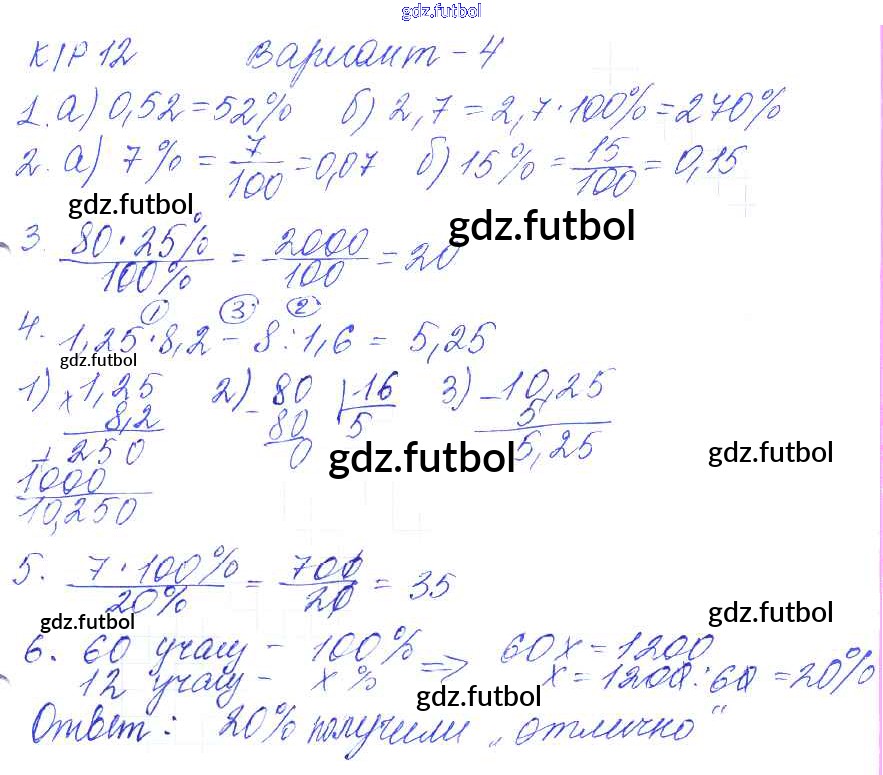 gdz.futbol
К/Р 12 Вариант - 4
1. а) 0,52 = 52% б) 2,7 = 2,7 · 100% = 270%
2. а) 7% = 7/100 = 0,07 б) 15% = 15/100 = 0,15
gdz.futbol
gdz.futbol
3. 80 · 25% / 100% = 2000/100 = 20
① ③ ②
4. 1,25 · 8,2 - 8 : 1,6 = 5,25
gdz.futbol
1) × 1,25 2) - 80 | 16 3) - 10,25
8,2 80 5 5
+ 250 0 5,25
1000
10,250
gdz.futbol
gdz.futbol
5. 7 · 100% / 20% = 700/20 = 35
gdz.futbol
gdz.futbol
6. 60 учащ - 100% => 60x = 1200
12 учащ - x % x = 1200 : 60 = 20%
gdz.futbol
Ответ: 20% получили „отлично"